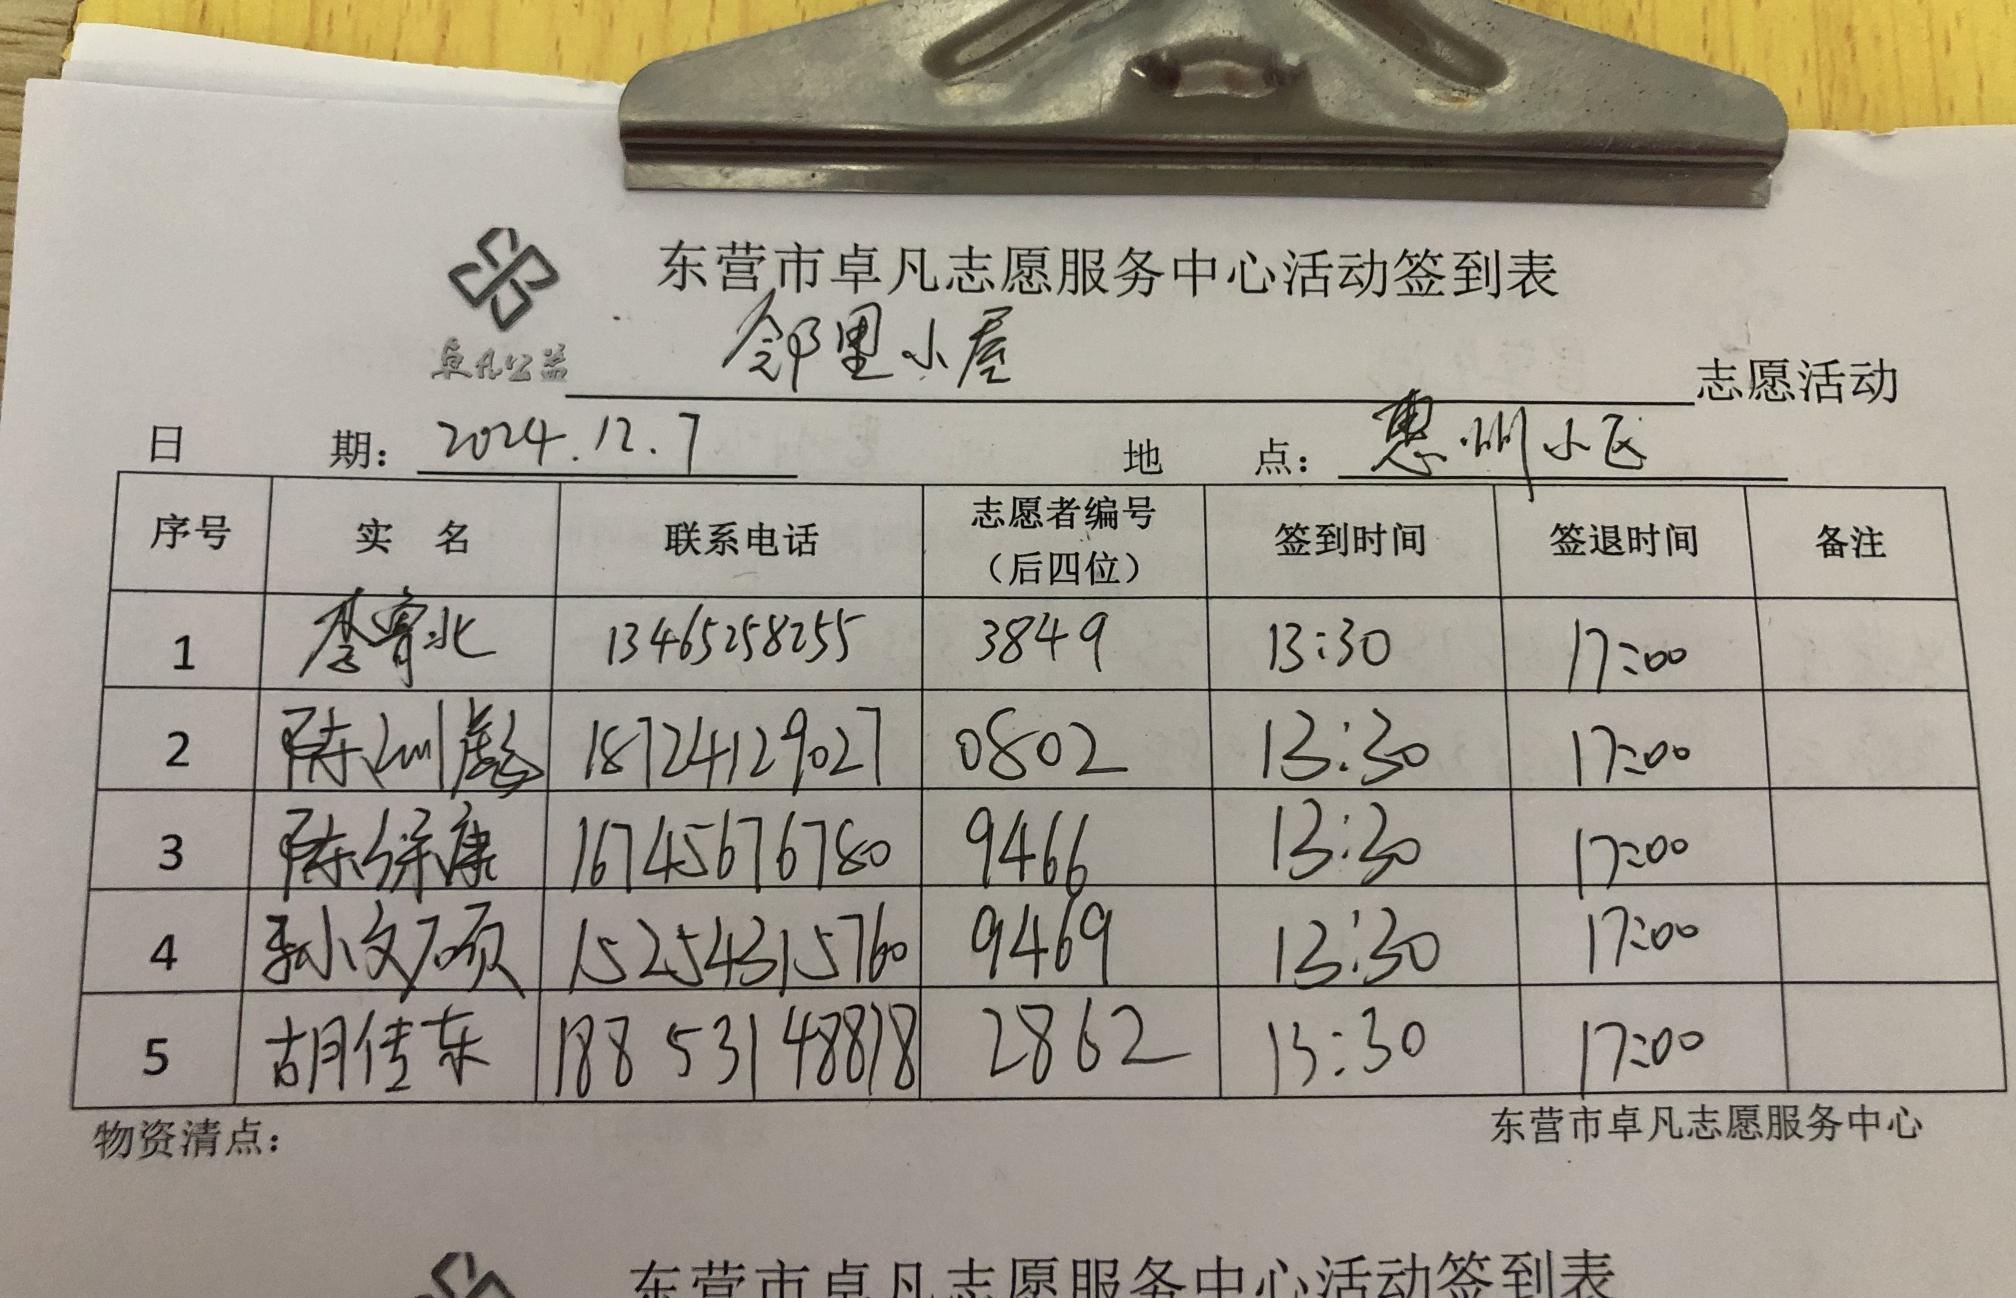 东营市卓凡志愿服务中心活动签到表
卓凡公益 邻里小屋 志愿活动
日 期：2024.12.7 地 点：惠州小区
序号 实 名 联系电话 志愿者编号（后四位） 签到时间 签退时间 备注
1 李鲁北 13465258255 3849 13:30 17:00
2 陈 18724129027 0802 13:30 17:00
3 陈保康 16745676780 9466 13:30 17:00
4 孙文硕 15254315760 9469 13:30 17:00
5 胡佳东 18853148818 2862 13:30 17:00
物资清点： 东营市卓凡志愿服务中心
东营市卓凡志愿服务中心活动签到表